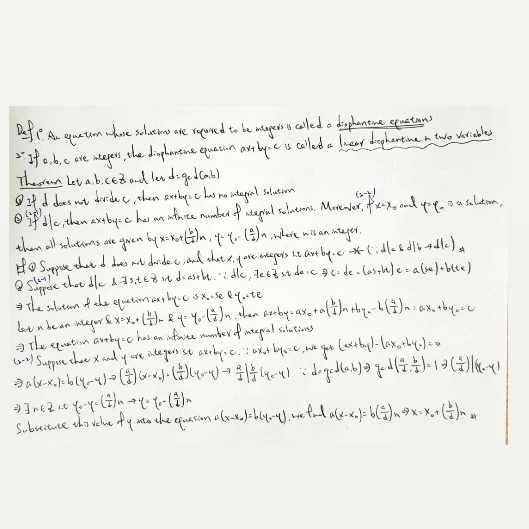 Def 1° An equation whose solutions are required to be integers is called a diophantine equations
2° If a, b, c are integers, the diophantine equation ax+by=c is called a linear diophantine in two variables
Theorem Let a, b, c ∈ Z and let d=gcd(a,b)
① If d does not divide c, then ax+by=c has no integral solution
② (2-1) If d|c, then ax+by=c has an infinite number of integral solutions. Moreover, (2-2) if x=x₀ and y=y₀ is a solution,
then all solutions are given by x=x₀+(b/d)n, y=y₀-(a/d)n, where n is an integer.
pf ① Suppose that d does not divide c, and that x, y are integers st ax+by=c →← (∵ d|a & d|b → d|c) #
② (2-1) Suppose that d|c & ∃ s,t∈Z st d=as+bt. ∵ d|c, ∃ e∈Z st de=c ⇒ c=de=(as+bt)e=a(se)+b(te)
⇒ The solution of the equation ax+by=c is x₀=se & y₀=te
Let n be an integer & x=x₀+(b/d)n & y=y₀-(a/d)n, then ax+by=ax₀+a(b/d)n+by₀-b(a/d)n=ax₀+by₀=c
⇒ The equation ax+by=c has an infinite number of integral solutions
(2-2) Suppose that x and y are integers st ax+by=c. ∵ ax₀+by₀=c, we get (ax+by)-(ax₀+by₀)=0
⇒ a(x-x₀)=b(y₀-y) ⇒ (a/d)(x-x₀)=(b/d)(y₀-y) ⇒ a/d | b/d (y₀-y) ∵ d=gcd(a,b) ⇒ gcd(a/d, b/d)=1 ⇒ (a/d)|(y₀-y)
⇒ ∃ n∈Z st y₀-y=(a/d)n ⇒ y=y₀-(a/d)n
Substitute this value of y into the equation a(x-x₀)=b(y₀-y), we find a(x-x₀)=b(a/d)n ⇒ x=x₀+(b/d)n #